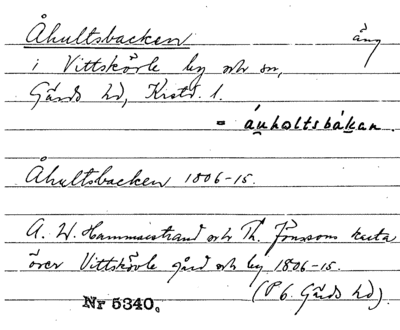 Åhultsbacken äng
i Vittskövle by och sn,
Gärds hd, Krstd. l.
= áuholtsbákan.
Åhultsbacken 1806-15.
A. W. Hammarstrand och Th. Jönssons karta
över Vittskövle gård och by 1806-15.
(P 6. Gärds hd).
Nr 5340.